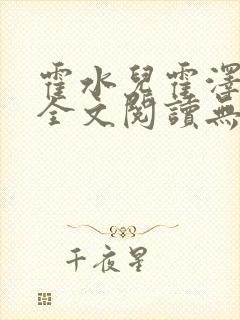 霍水兒霍澤
全文閱讀無
千夜星